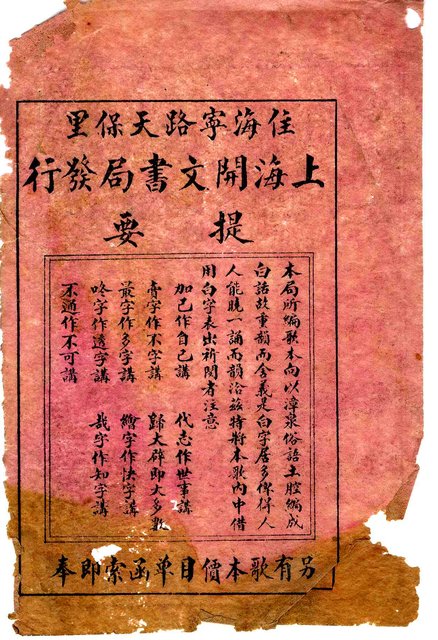 住海寧路天保里
上海開文書局發行
提要
本局所編歌本向以漳泉俗語土腔編成
白話故重韻而舍義是白字居多俾使人
人能曉一誦而韻洽茲特將本歌內中借
用白字表出祈閱者注意
加己作自己講
代志作世事講
青字作不字講
歸大辟即大多數
最字作多字講
繪字作快字講
咚字作透字講
哉字作知字講
袂通作不可講
另有歌本價目单函索即奉